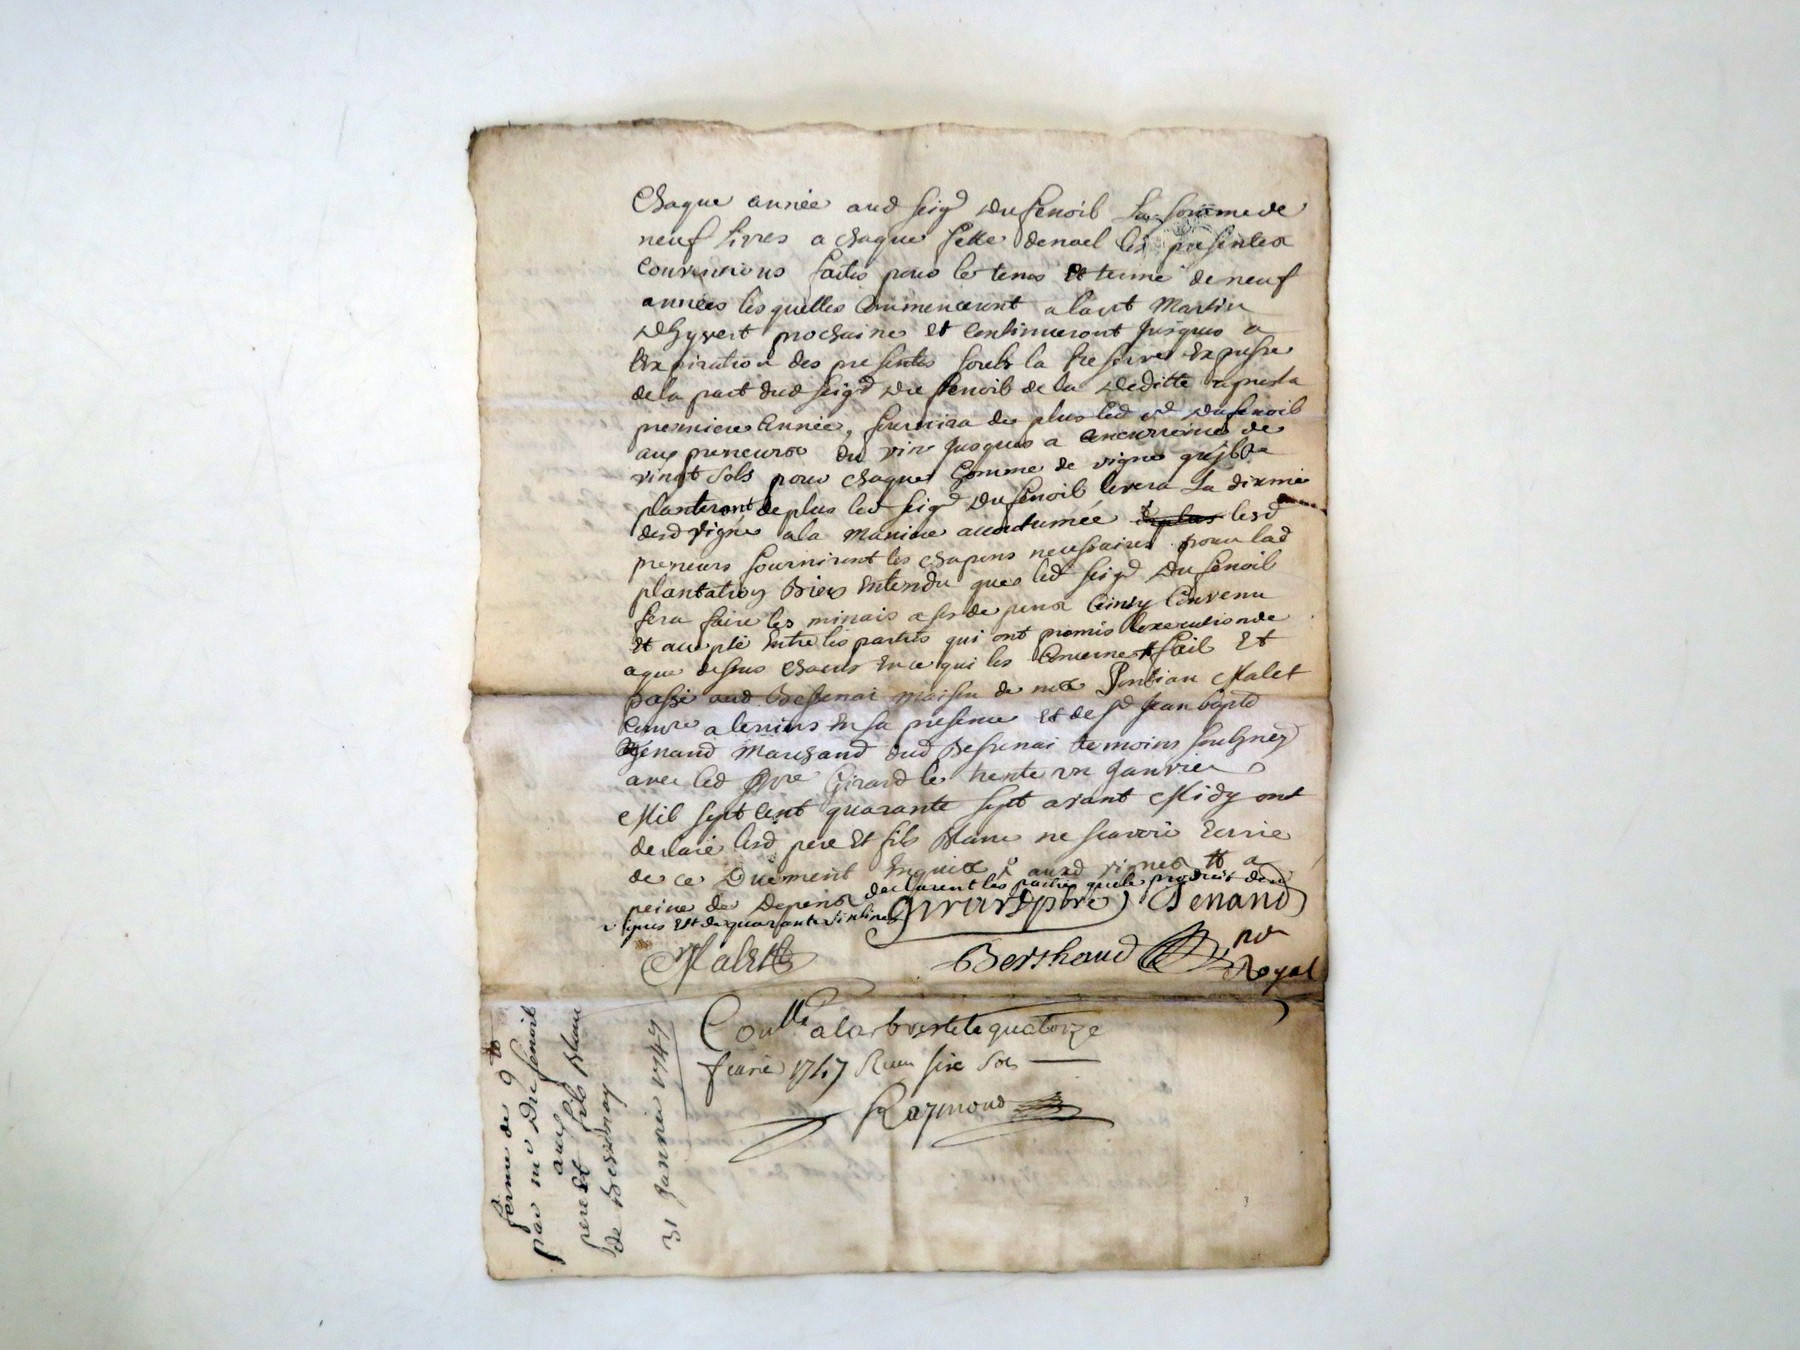 Chaque année aud seigr Du fenoil La somme de
neuf livres a chaque feste de noel les presentes
Convenions faites pour le tems Et terme de neuf
années les quelles Commenceront a la st Martin
Dhyvert prochaine et Continueront jusques a
Expiration des presentes soubs la Reserve Expresse
de la part dud seigr Du fenoil de la Deditte apres la
premiere Année, fournira de plus led sr Du fenoil
aux preneurs du vin jusques a Concurrence de
vingt sols pour chaque homme de vigne qu'ils
planteront de plus led seigr Du fenoil levera La dixme
desd vignes a la maniere accoutumée de plus lesd
preneurs fourniront les chapons necessaires pour lad
plantation Bien Entendu que led seigr Du fenoil
fera faire les minais a ses depens Ainsy Convenu
Et accepté Entre les parties qui ont promis l'execution de
a que dessus Chacun En ce qui les Concerne fait Et
passé aud Bessenai maison de me Pontian Malet
a Lenins En sa presence Et de sr Jean bapte
Denand Marchand dud Bessenai temoins soubsnez
avec led Girard le trente un janvier
Mil sept Cent quarante sept avant Midy ont
declaré lesd pere Et fils Blanc ne scavoir Ecrire
de ce Duement Enquis aud vignes Et a
peine de Depens declarent les parties que le produit desd
vignes Est de quarante
Girard pbre Denand
Malet Berthaud nre Royal
Conlle a larbresle le quatorze
fevrie 1747 Receu six sols
Raymond
ferme de 9
par mr Du fenoil
aux
pere Et fils Blanc
de Bessenay
31 janvier 1747